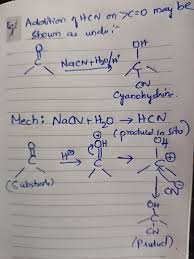 Addition of HCN on >C=O may be
shown as under:-
O
NaCN+H2O/H⊕
OH
CN
Cyanohydrine.
Mech: NaCN+H2O → HCN
(product in situ)
O
H⊕
⊕OH
OH
⊕
CN
(Substrate)
OH
CN
(Product)